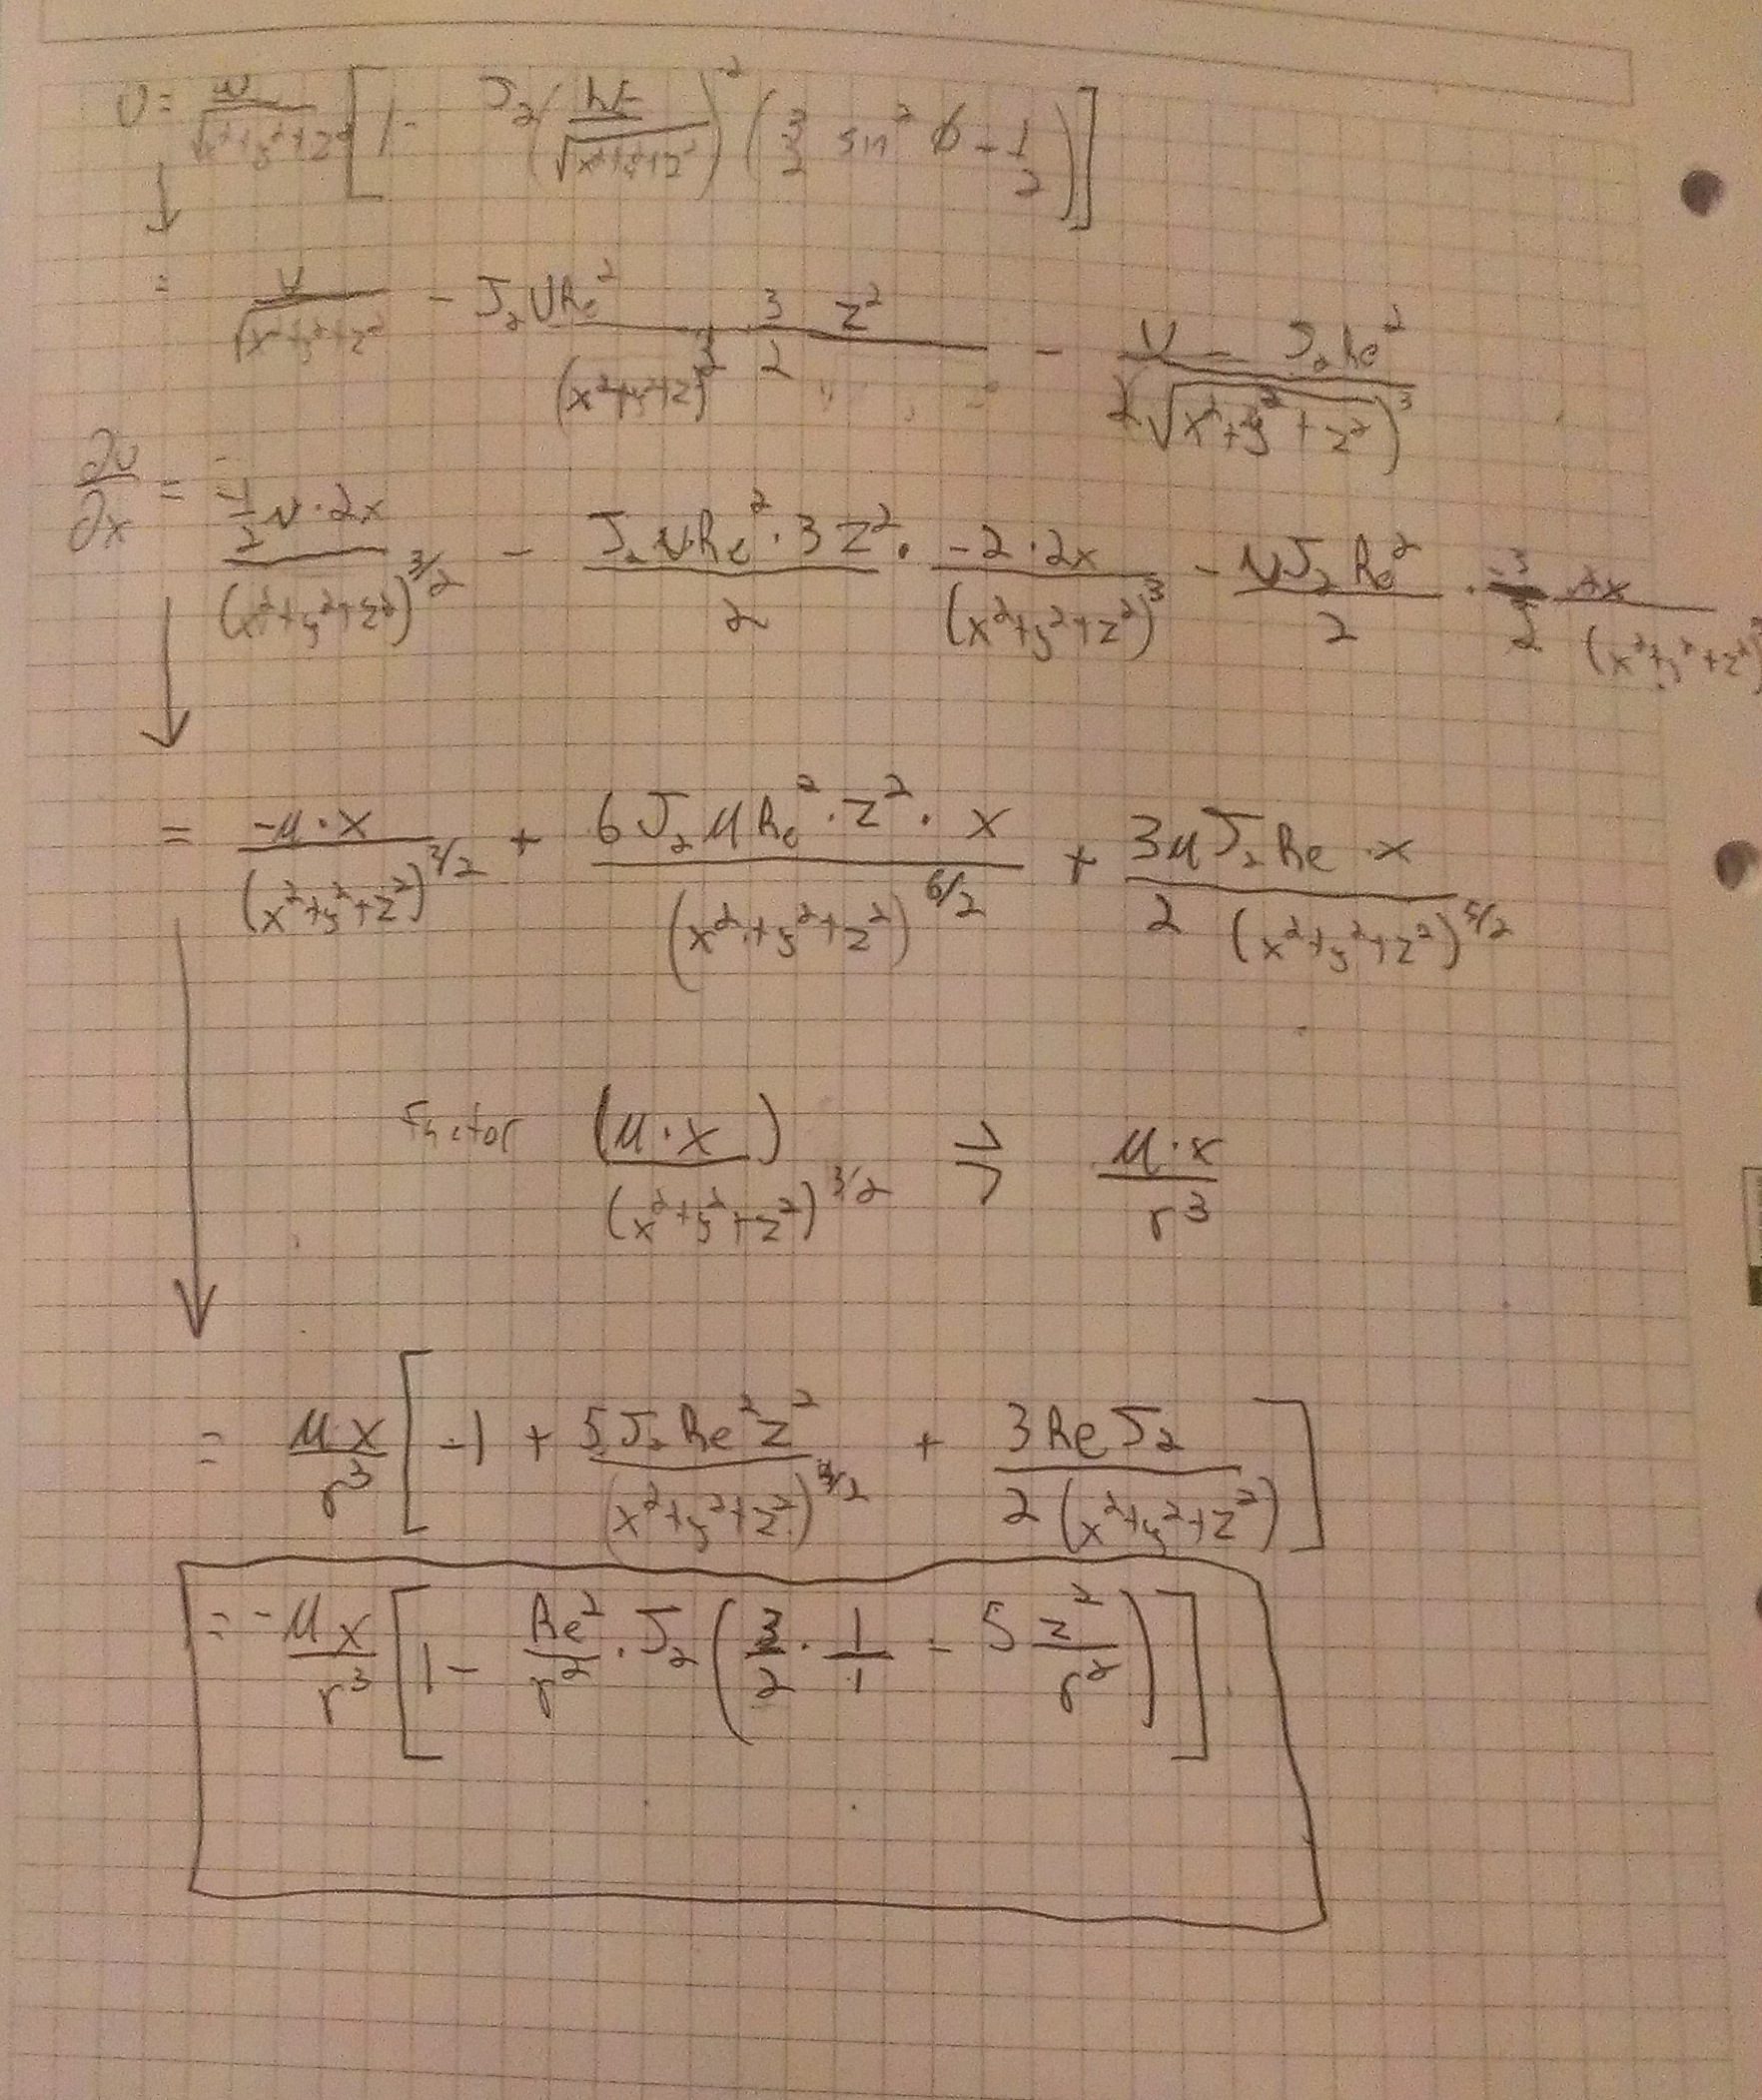 U = μ/√(x²+y²+z²) [1 - J₂(Re/√(x²+y²+z²))² (3/2 sin²ϕ - 1/2)]
= U/√(x²+y²+z²) - J₂URe²/(x²+y²+z²)² 3/2 z² - U - J₂Re²/2√(x²+y²+z²)³
∂U/∂x = -1/2 μ·2x/(x²+y²+z²)^3/2 - J₂μRe²·3z²/2 · -2·2x/(x²+y²+z²)³ - μJ₂Re²/2 · -3/2 2x/(x²+y²+z²)
= -μ·x/(x²+y²+z²)^3/2 + 6J₂μRe²·z²·x/(x²+y²+z²)^6/2 + 3μJ₂Re·x/2(x²+y²+z²)^5/2
Factor (μ·x)/(x²+y²+z²)^3/2 ⇒ μ·x/r³
= μx/r³ [-1 + 5J₂Re²z²/(x²+y²+z²)^3/2 + 3ReJ₂/2(x²+y²+z²)]
= -μx/r³ [1 - Re²/r²·J₂(3/2·1/1 - 5 z²/r²)]